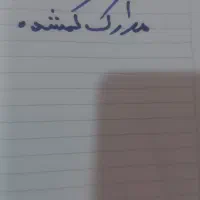 مدارک گمشده